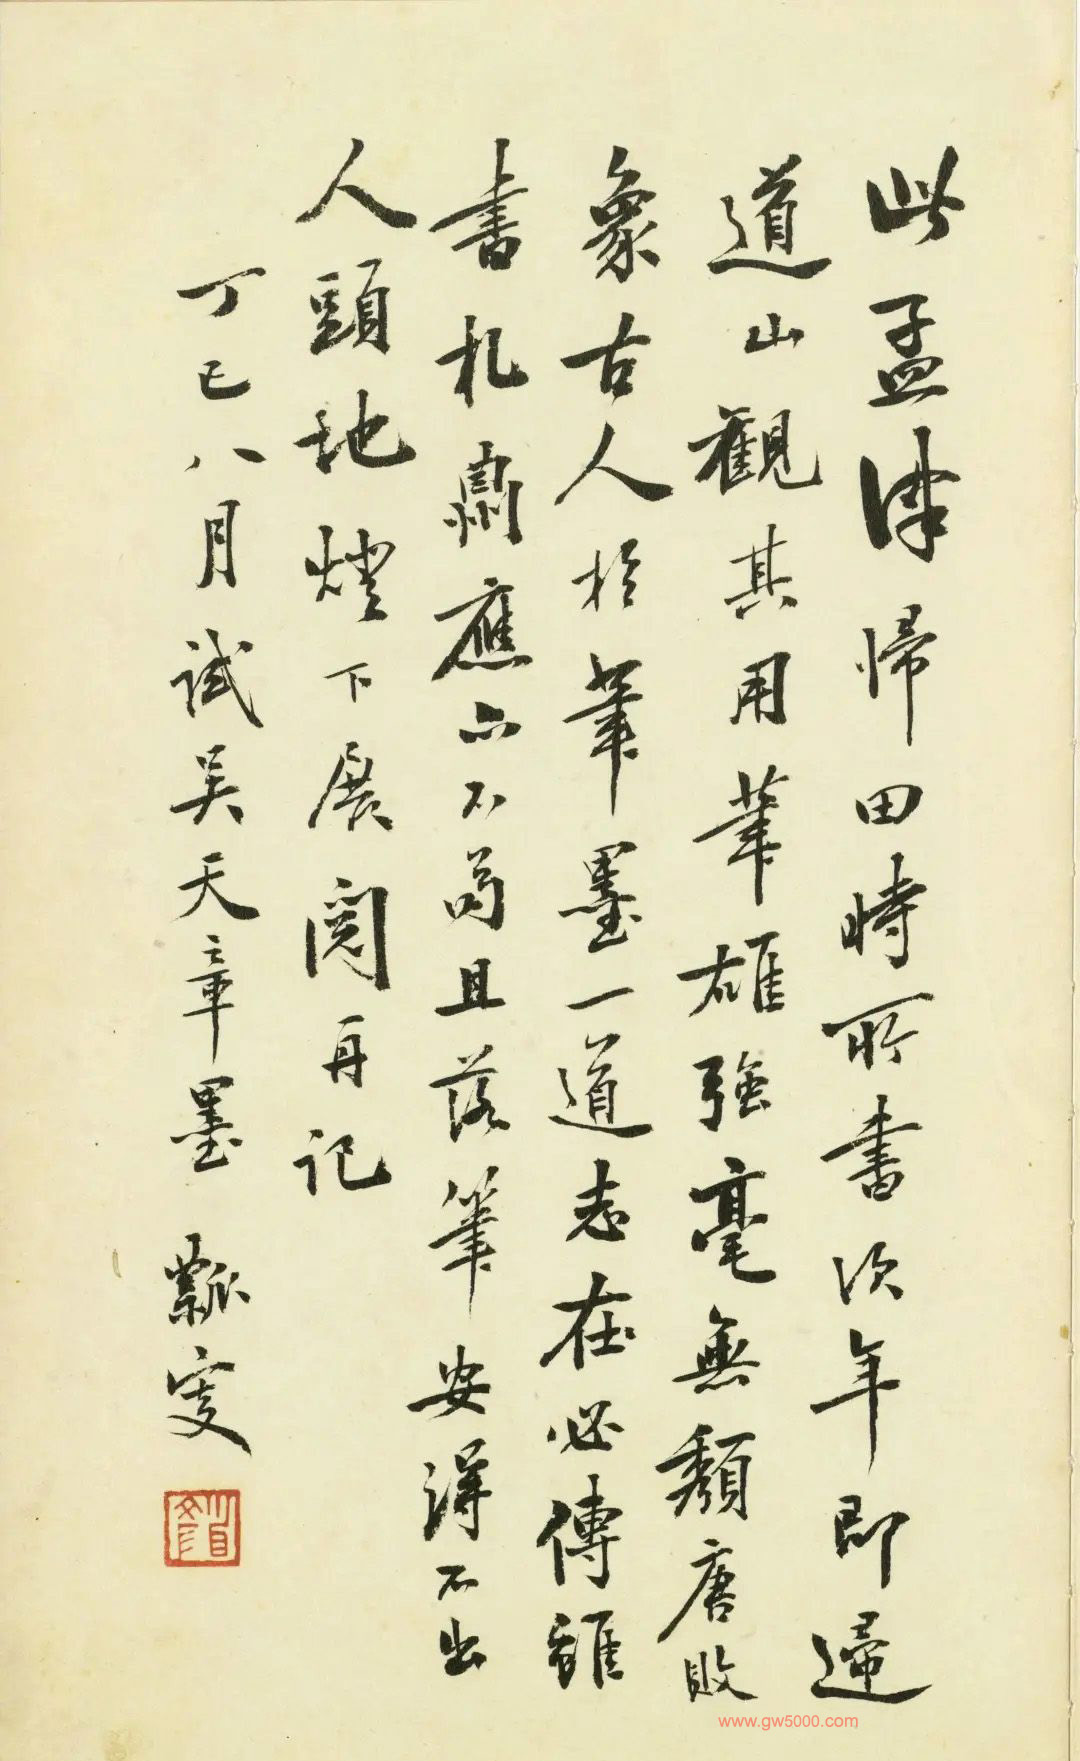 此孟津歸田時所書次年即歸
道山觀其用筆雄強毫無頹唐敗
象古人於筆墨一道志在必傳雖
書札肅應亦不苟且落筆安得不出
人頭地燈下展閱再記
丁巳八月試吳天章墨 瓢叟
www.gw5000.com